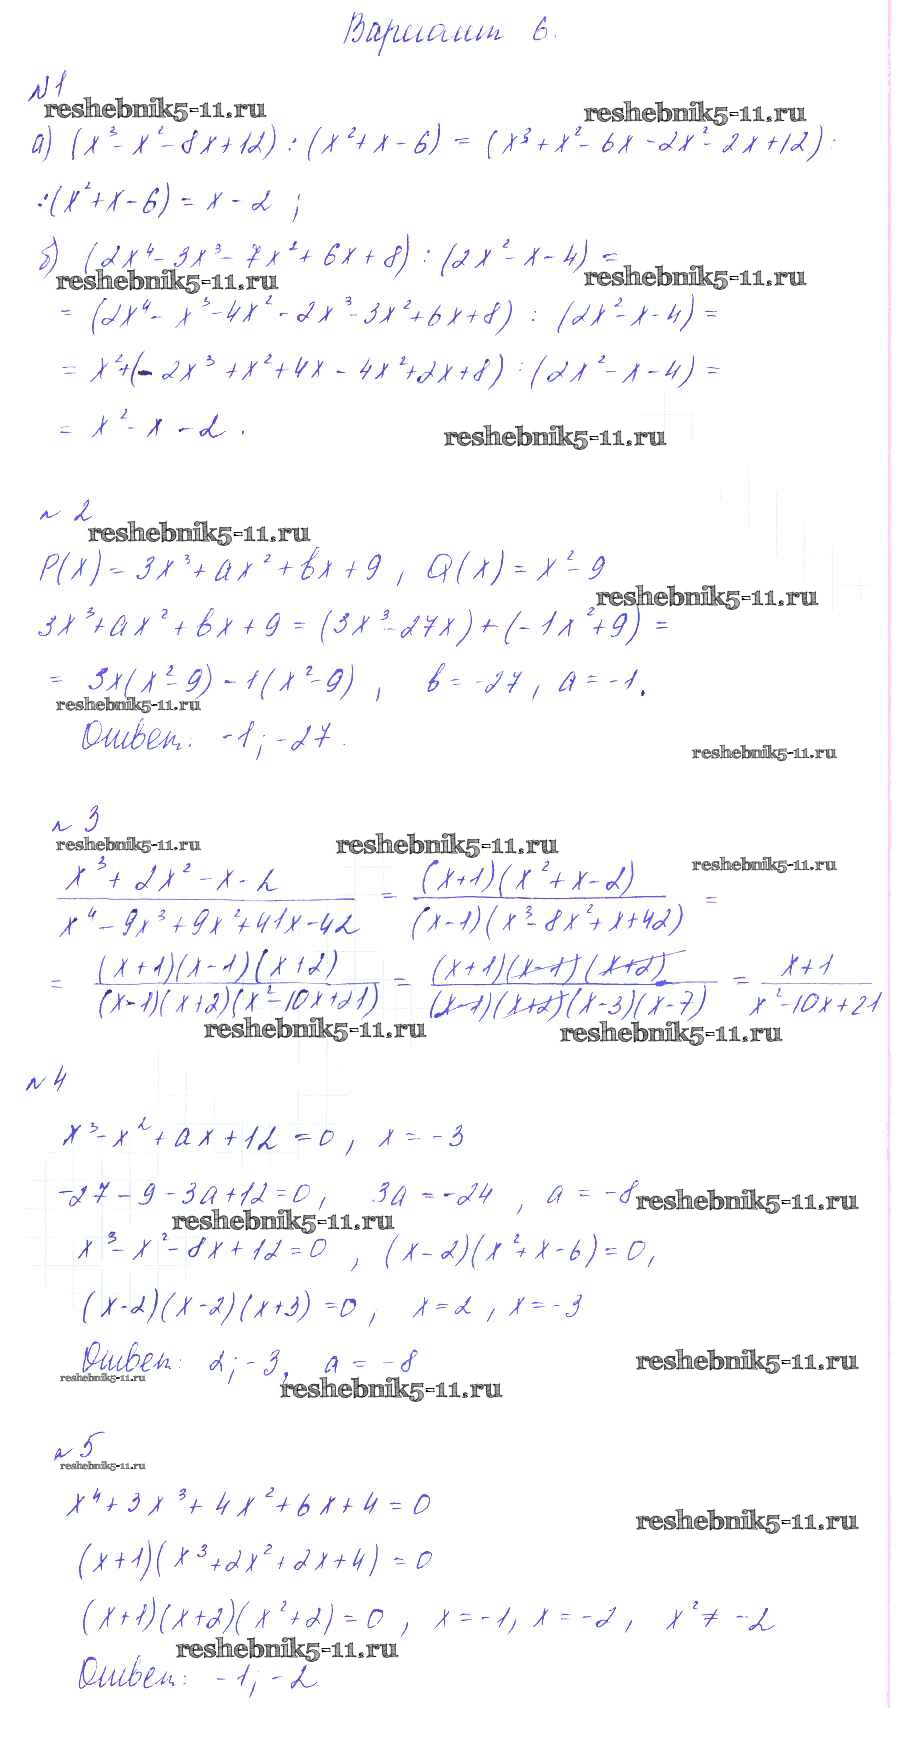 Вариант 6.
№1
reshebnik5-11.ru
reshebnik5-11.ru
а) (x³ - x² - 8x + 12) : (x² + x - 6) = (x³ + x² - 6x - 2x² - 2x + 12) :
: (x² + x - 6) = x - 2 ;
б) (2x⁴ - 3x³ - 7x² + 6x + 8) : (2x² - x - 4) =
reshebnik5-11.ru
reshebnik5-11.ru
= (2x⁴ - x³ - 4x² - 2x³ - 3x² + 6x + 8) : (2x² - x - 4) =
= x² + (- 2x³ + x² + 4x - 4x² + 2x + 8) : (2x² - x - 4) =
= x² - x - 2 .
reshebnik5-11.ru
№ 2
reshebnik5-11.ru
P(x) = 3x³ + ax² + bx + 9 , Q(x) = x² - 9
reshebnik5-11.ru
3x³ + ax² + bx + 9 = (3x³ - 27x) + (- 1x² + 9) =
= 3x(x² - 9) - 1(x² - 9) , b = -27 , a = -1.
reshebnik5-11.ru
Ответ: -1; -27.
reshebnik5-11.ru
№ 3
reshebnik5-11.ru
reshebnik5-11.ru
reshebnik5-11.ru
(x³ + 2x² - x - 2)/(x⁴ - 9x³ + 9x² + 41x - 42) = ((x+1)(x² + x - 2))/((x-1)(x³ - 8x² + x + 42)) =
= ((x+1)(x-1)(x+2))/((x-1)(x+2)(x² - 10x + 21)) = ((x+1)(x-1)(x+2))/((x-1)(x+2)(x-3)(x-7)) = (x+1)/(x² - 10x + 21)
reshebnik5-11.ru
reshebnik5-11.ru
№ 4
x³ - x² + ax + 12 = 0 , x = -3
-27 - 9 - 3a + 12 = 0 , 3a = -24 , a = -8
reshebnik5-11.ru
reshebnik5-11.ru
x³ - x² - 8x + 12 = 0 , (x - 2)(x² + x - 6) = 0,
(x - 2)(x - 2)(x + 3) = 0 , x = 2 , x = -3
Ответ: 2; -3, a = -8
reshebnik5-11.ru
reshebnik5-11.ru
reshebnik5-11.ru
№ 5
reshebnik5-11.ru
x⁴ + 3x³ + 4x² + 6x + 4 = 0
reshebnik5-11.ru
(x + 1)(x³ + 2x² + 2x + 4) = 0
(x + 1)(x + 2)(x² + 2) = 0 , x = -1, x = -2 , x² ≠ -2
reshebnik5-11.ru
Ответ: -1; -2